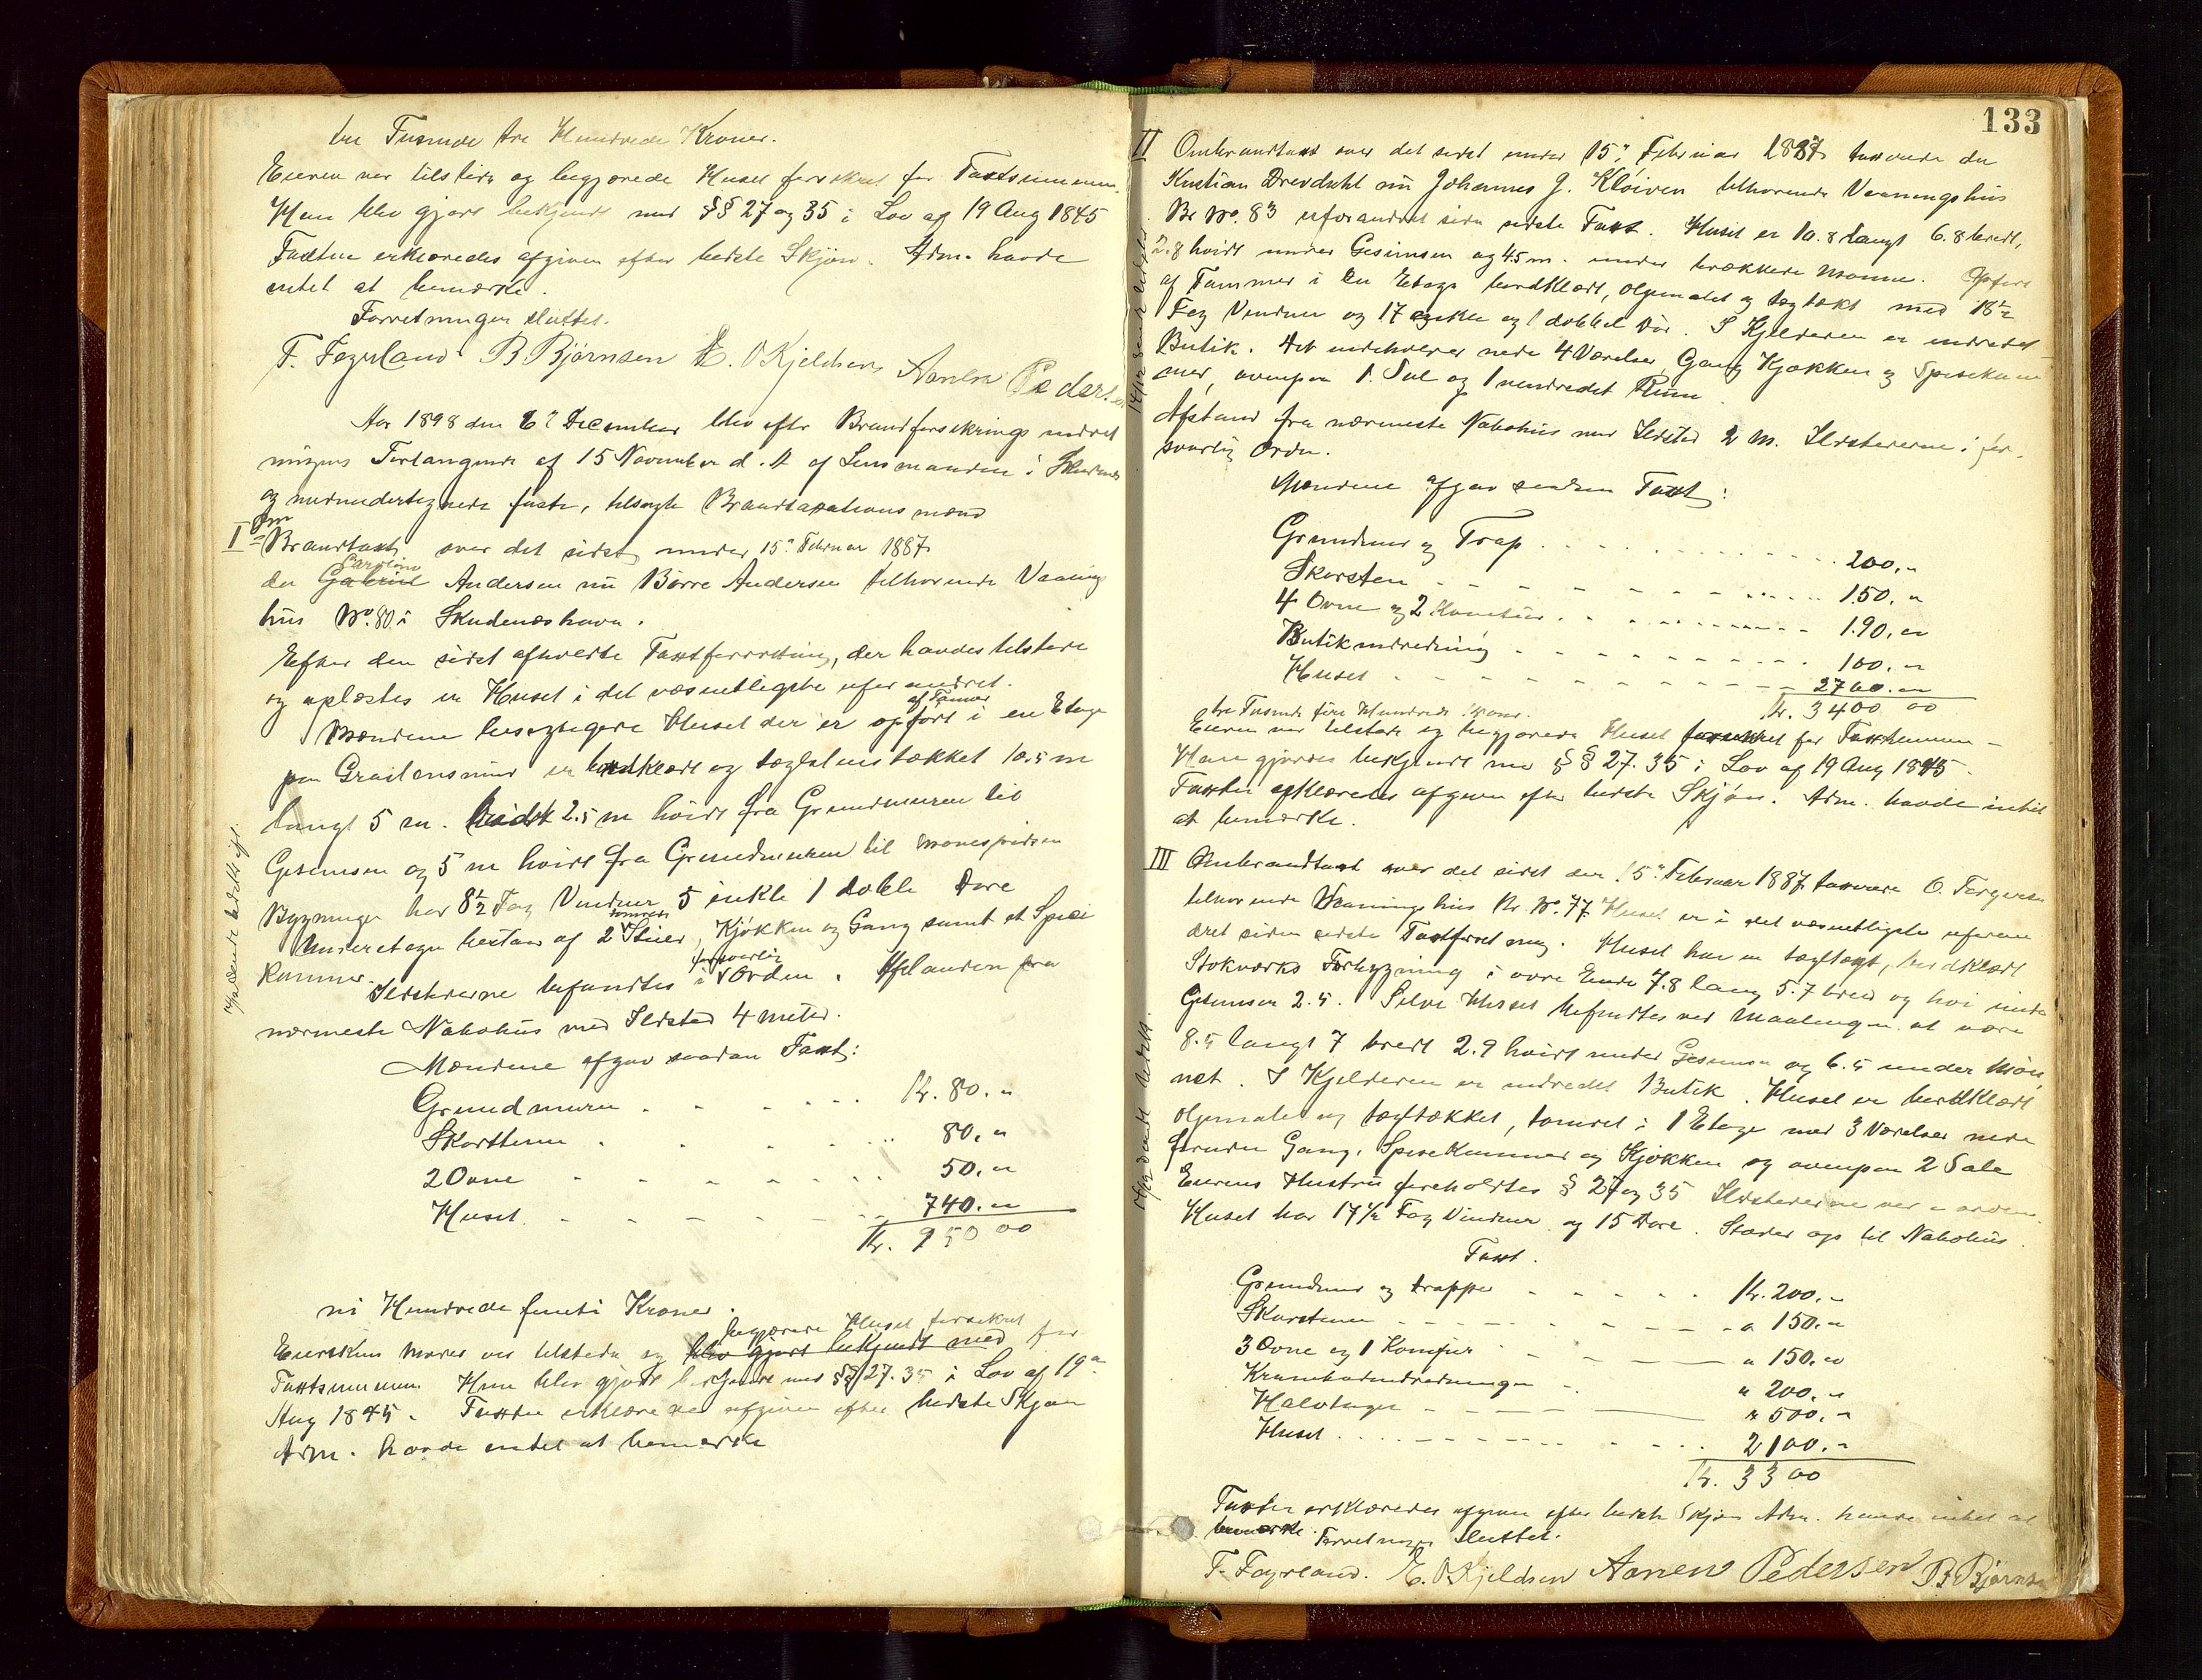 tre Tusinde tre Hundrede Kroner.
Eieren var tilstede og begjærede Huset forsikret for Taxtsummen.
Han blev gjort bekjendt med §§ 27 og 35 i Lov af 19 Aug 1845
Taxten erklæredes afgiven efter bedste Skjøn. Adm. havde
intet at bemærke.
Forretningen sluttet.
T. Fagerland B Bjørnsen E. O Kjeldsen Aanen Pedersen
Aar 1898 den 6te December blev efter Brandforsikrings indret
ningens Forlangende af 15 November d. A af Lensmanden i Skudenes
og medundertegnede faste, tilsagte Brandtaxations mænd
I Om
Brandtaxt over det sidst under 15de Februar 1887
Caroline
der Gabriel Andersen nu Børre Andersen tilhørende Vaanings
hus No. 80 i Skudeneshavn.
Efter den sidst afholdte Taxtforretning, der havdes tilstede
og oplæstes er Huset i det væsentligste uforandret.
af Tømmer
Mændene besigtigede Huset der er opført i en Etage
paa Graastensmur er bordklædt og tagstenstækket 10.5 m
langt 5 m. bredt 2.5 m høidt fra Grundmuren til
Gesimsen og 5 m høidt fra Grundmuren til Mønespidsen
Bygningen har 8½ Fag Vinduer 5 enkle 1 doble Døre
Underetagen bestaar af 2 Stuer, Kjøkken og Gang samt et Spise
kammer.
forsvarlig
Ildstederne befandtes i Orden. Afstanden fra
nærmeste Nabohus med Ildsted 4 meter.
Mændene afgav saadan Taxt:
Grundmuren . . . . Kr. 80. "
Skorstenen . . . . 80. "
2 Ovne . . . . 50. "
Huset . . . . 740. "
Kr. 950 00
ni Hundrede femti Kroner.
begjærede Huset forsikret
Eierskens Moder var tilstede og blev gjort bekjendt med for
Taxtsummen Hun blev gjort bekjendt med §§ 27. 35 i Lov af 19de
Aug 1845. Taxten erklæredes afgiven efter bedste Skjøn
Adm. havde intet at bemærke
133
II Ombrandtaxt over det sidst under 15de Februar 1887 taxerede da
Kristian Drevdahl nu Johannes J. Kløiven tilhørende Vaaningshus
Br No. 83 uforandret siden sidste Taxt. Huset er 10.8 langt 6.8 bredt,
2.8 høidt under Gesimsen og 4.5 m. under trækkede Mønne. Opført
af Tømmer i en Etage bordklædt, oljemalet og tagtækt med 18½
Fag Vinduer og 17 enkle og 1 dobbel Dør. I Kjelderen er indredet
Butik. Det indeholder nede 4 Værelser, Gang Kjøkken og Spisekam
mer, ovenpaa 1. Sal og 1 uindredet Rum.
Afstand fra nærmeste Nabohus med Ildsted 2 M. Ildstederne i for
svarlig Orden.
Mændene afgav saadan Taxt:
Grundmur og Trap . . . . 200. "
Skorsten . . . . 150. "
4 Ovne og 2 Komfur . . . . 190. "
Butikindredning . . . . 100. "
Huset . . . . 2760. "
Kr. 3400 00
tre Tusinde fire Hundrede Kroner.
Eieren var tilstede og begjærede Huset forsikret for Taxtsummen -
Han gjordes bekjendt med §§ 27. 35 i Lov af 19 Aug 1845.
Taxten erklæredes afgiven efter bedste Skjøn. Adm. havde intet
at bemærke.
III Ombrandtaxt over det sidst den 15de Februar 1887 taxerede O. Torgersen
tilhørende Vaaningshus Br No. 77. Huset er i det væsentligste uforan
dret siden sidste Taxtforretning. Huset har en tagtagt, bordklædt
Stokværks Forbygning i øvre Ende 7.8 lang 5.7 bred og høi under
Gesimsen 2.5. Selve Huset befindtes ved Maalingen at være
8.5 langt 7 bredt 2.9 høidt under Gesimsen og 6.5 under Møn
net. I Kjelderen er indredet Butik. Huset er bordklædt
oljemalet og tagtækket, tømret i 1 Etage med 3 Værelser nede
foruden Gang, Spisekammer og Kjøkken og ovenpaa 2 Sale
Eierens Hustru foreholdtes § 27 og 35 Ildstederne var i orden.
Huset har 17½ Fag Vinduer og 15 Døre. Støder op til Nabohus.
Taxt.
Grundmur og trappe . . . . Kr. 200. "
Skorstene . . . . " 150. "
3 Ovne og 1 Komfur . . . . " 150. "
Krambodindredningen . . " 200. "
Halvtaget . . . . " 500. "
Huset . . . . 2100. "
Kr. 3300
Taxten erklæredes afgiven efter bedste Skjøn Adm. havde intet at
bemærke. Forretningen sluttet.
T. Fagerland. E. O Kjeldsen Aanen Pedersen B Bjørnsen